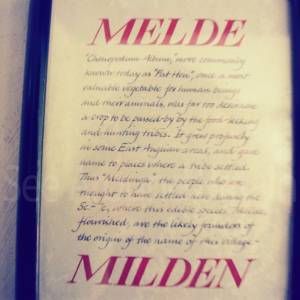 MELDE
"Chenopodium Album," more commonly
known today as "Fat Hen", once a most
valuable vegetable for human beings
and their animals, was far too desirable
a crop to be passed-by by the food-seeking
and hunting tribes. It grew profusely
in some East Anglian areas, and gave
name to places where a tribe settled.
Thus "Meldinga", the people who are
thought to have settled here during the
5c. - 7c., where this edible species, Melde,
flourished, are the likely founders of
the origin of the name of this village-
MILDEN